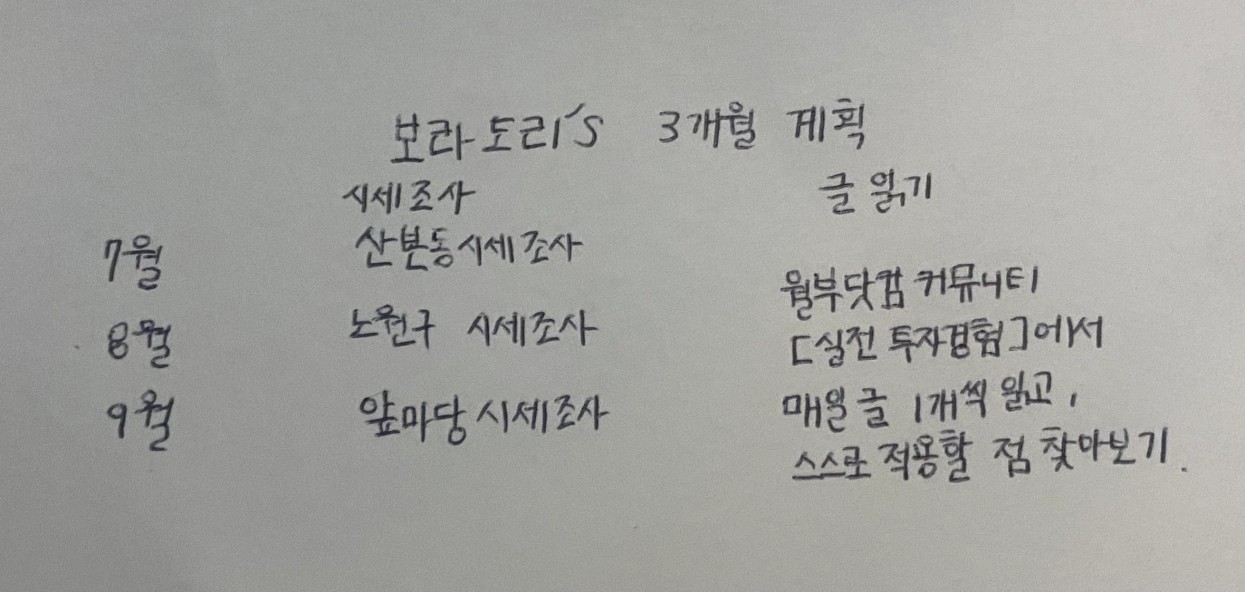 보라도리's 3개월 계획
시세조사 글 읽기
7월 산본동 시세조사
8월 노원구 시세조사
9월 앞마당 시세조사
월부닷컴 커뮤니티
[실전 투자경험]에서
매일 글 1개씩 읽고,
스스로 적용할 점 찾아보기.